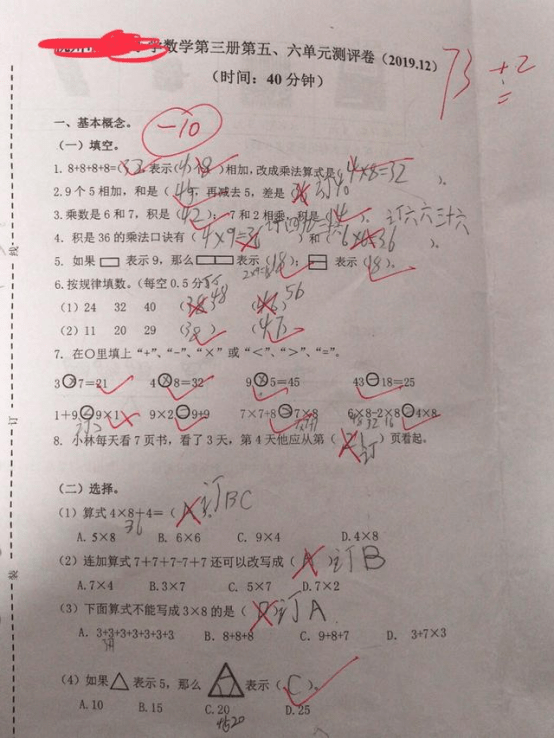 学数学第三册第五、六单元测评卷（2019.12）
73 +2
（时间：40分钟）
-10
一、基本概念。
（一）填空。
1. 8+8+8+8=（32）表示（4）个（8）相加，改成乘法算式是（4×8=32）。
2. 9个5相加，和是（45），再减去5，差是 订40
3. 乘数是6和7，积是（42）；7和2相乘，积是（14）。
4. 积是36的乘法口诀有（4×9=36）和（6×6=36）。订六六三十六
5. 如果 表示9，那么 表示（18）； 表示（18）。
6. 按规律填数。（每空0.5分）
（1）24 32 40 48 56
（2）11 20 29 （38）（47）
7. 在○里填上“+”、“-”、“×”或“<”、“>”、“=”。
3×7=21 4×8=32 9×5=45 43-18=25
1+9 9×1 9×2=9+9 7×7+8 7×8 6×8-2×8=4×8
8. 小林每天看7页书，看了3天，第4天他应从第（ ）页看起。
订
（二）选择。
（1）算式4×8+4=（A）订BC
36
A. 5×8 B. 6×6 C. 9×4 D. 4×8
（2）连加算式7+7+7-7+7还可以改写成（A）订B
A. 7×4 B. 3×7 C. 5×7 D. 7×2
（3）下面算式不能写成3×8的是（D）订A
A. 3+3+3+3+3+3+3 B. 8+8+8 C. 9+8+7 D. 3+7×3
（4）如果△表示5，那么 表示（C）。
A. 10 B. 15 C. 20 D. 25
线
订
装